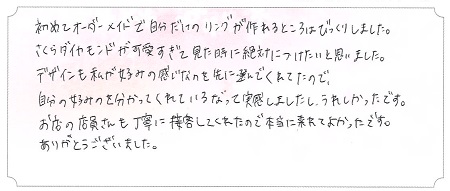 初めてオーダーメイドで自分だけのリングが作れるところはびっくりしました。
さくらダイヤモンドが可愛すぎて見た時に絶対につけたいと思いました。
デザインも私が好みの感じなのを先に選んでくれてたので、
自分の好みのを分かってくれているなって実感しましたし、うれしかったです。
お店の店員さんも丁寧に接客してくれたので本当に来れてよかったです。
ありがとうございました。